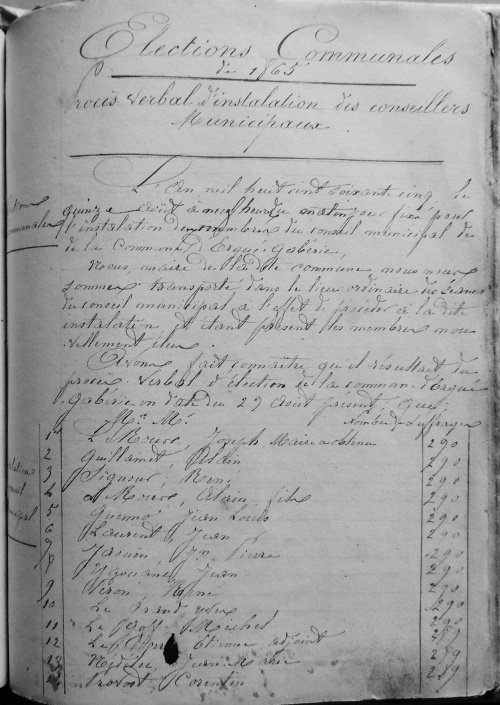 Elections Communales
de 1865
Procès verbal d'instalation des conseillers
Municipaux
L'an mil huit cent soixante cinq le
quinze Août à neuf heures du matin jour fixé pour
l'instalation des membres du conseil municipal de
de la Commune d'Ergué-Gabéric,
Nous, maire de la dite commune nous nous
sommes transporté dans le lieu ordinaire des séances
du conseil municipal a l'effet de procéder à la dite
instalation, et étant présent les membres nou
vellement élus.
Avons fait connaître qu'il résultait du
procès verbal d'élection de la commune d'Ergué
Gabéric en date du 27 Août présent, que:
Mrs M. Nombre de suffrages
1 Le Mour, Joseph, Maire a obtenu 290
2 Guillamet, Alain 290
3 Signour, René 290
4 Le Mour, Alain fils 290
5 Guenno Jean Louis 290
6 Laurent, Jean 290
7 Jaouen Jn Pierre 290
8 Jean 290
9 René 290
10 Le Grand 290
11 Le Goff Michel 290
12 Le Etienne adjoint 289
13 Nédélec Jean Marie 289
14 Provost Corentin 289